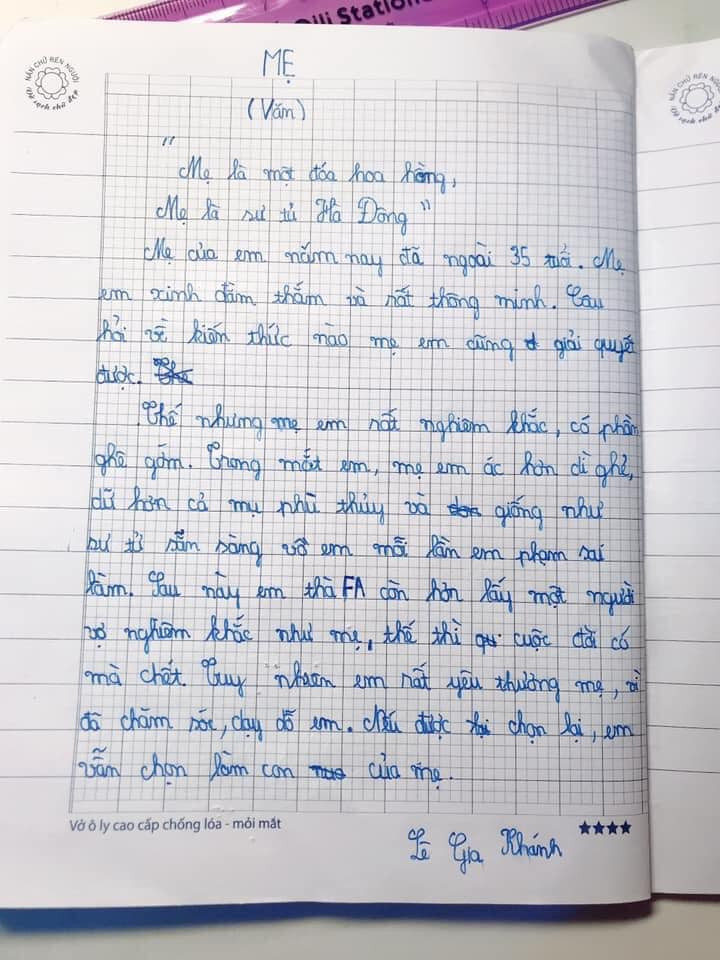 Dili Station
NẮN CHỮ RÈN NGƯỜI
Vở sạch chữ đẹp
NẮN CHỮ RÈN NGƯỜI
MẸ
(Văn)
"
Mẹ là một đóa hoa hồng,
Mẹ là sư tử Hà Đông"
Mẹ của em năm nay đã ngoài 35 tuổi. Mẹ
em xinh đằm thắm và rất thông minh. Câu
hỏi về kiến thức nào mẹ em cũng giải quyết
được.
Thế nhưng mẹ em rất nghiêm khắc, có phần
ghê gớm. Trong mắt em, mẹ em ác hơn dì ghẻ,
dữ hơn cả mụ phù thủy và giống như
sư tử sẵn sàng vồ em mỗi lần em phạm sai
lầm. Sau này em thà FA còn hơn lấy một người
vợ nghiêm khắc như mẹ, thế thì cuộc đời có
mà chết. Tuy nhiên em rất yêu thương mẹ, vì
đã chăm sóc, dạy dỗ em. Nếu được chọn lại, em
vẫn chọn làm con của mẹ.
Vở ô ly cao cấp chống lóa - mỏi mắt
Lê Gia Khánh